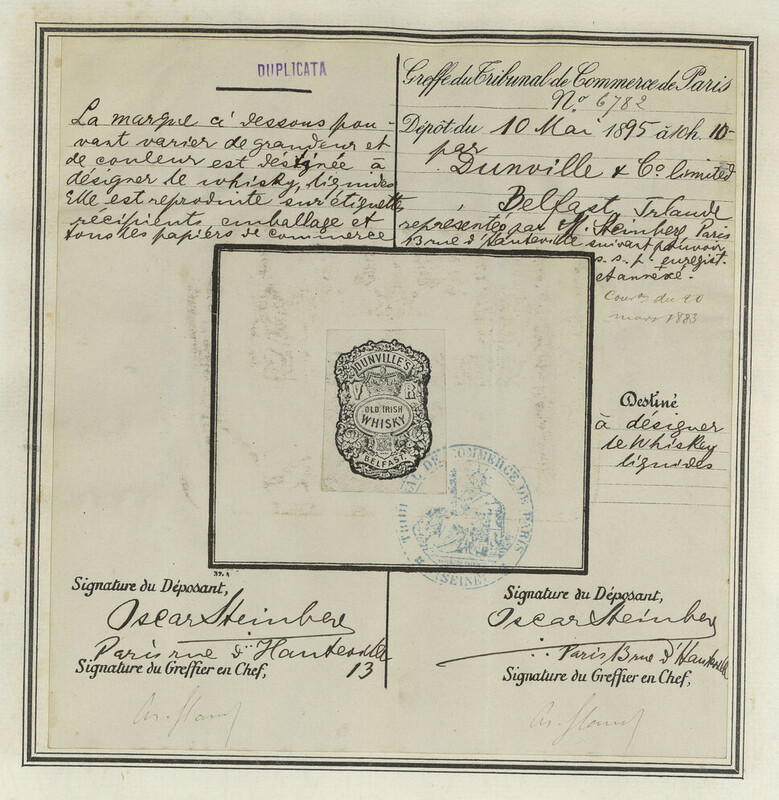 DUPLICATA
La marque ci dessous pou-
vant varier de grandeur et
de couleur est désignée à
désigner le whisky, liquides
Elle est reproduite sur étiquettes
recipients, emballage et
tous les papiers de commerce
Greffe du Tribunal de Commerce de Paris
No 6782
Dépôt du 10 Mai 1895 à 10h. 10-
par
Dunville & Co limited
Belfast Irlande
representés par M. Steinberg Paris
13 rue d'Hauteville suivant pouvoir
s. s. p. enregist.
et annexé.
du 20
mars 1883
DUNVILLE'S
V R
OLD IRISH
WHISKY
BELFAST
Destiné
à désigner
le Whiskey
liquides
TRIBUNAL DE COMMERCE DE PARIS
(SEINE)
Signature du Déposant,
Oscar Steinberg
Paris rue d'Hauteville
13
Signature du Greffier en Chef,
Signature du Déposant,
Oscar Steinberg
Paris 13 rue d'Hauteville
Signature du Greffier en Chef,